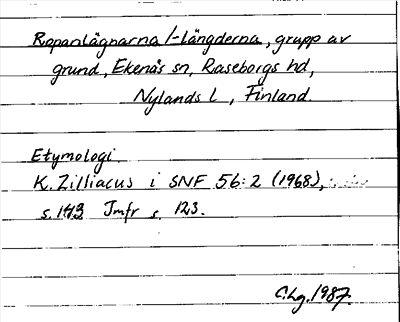 Ropanlägnarna/-längderna, grupp av
grund, Ekenäs sn, Raseborgs hd,
Nylands l, Finland.
Etymologi.
K. Zilliacus i SNF 56:2 (1968),
s. 143 Jmfr s. 123.
C.Lg. 1987.